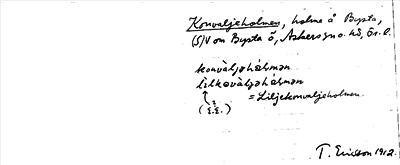 Konvaljeholmen, holme å Bysta,
(S)V om Bysta ö, Askers sn o. hd, Ör. l.
konvàljəhålmən
lilkovàljəhålmən
= Liljekonvaljeholmen.
T. Ericsson 1912.